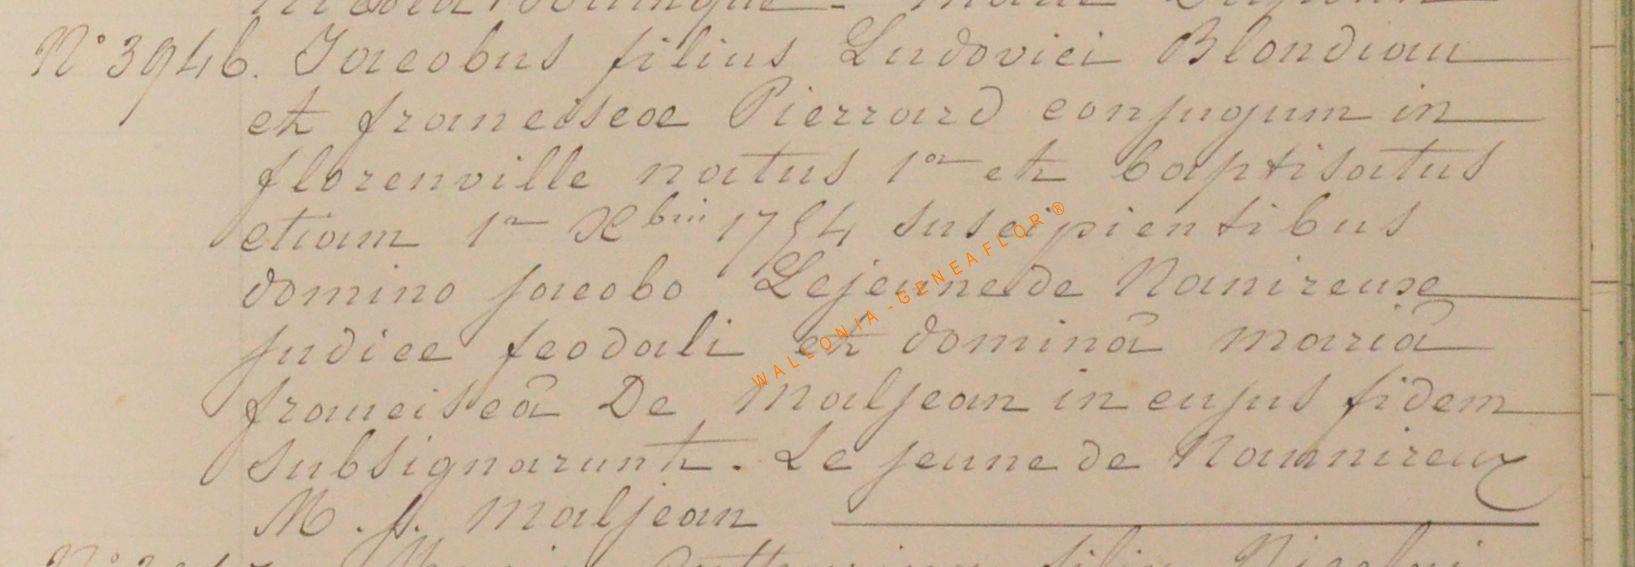 N° 3946. Jacobus filius Ludovici Blondiau
et franciscae Pierrard conjugum in
florenville natus 1a et baptisatus
etiam 1a Xbris 1754 suscipientibus
domino jacobo Lejeune de Nanireuxe
judice feodali et dominâ mariâ
franciscâ De Maljean in cujus fidem
subsignarunt. Le jeune de Naunireux
M. f. Maljean
filia Nicolai
WALLONIA-GENEAFLOR®